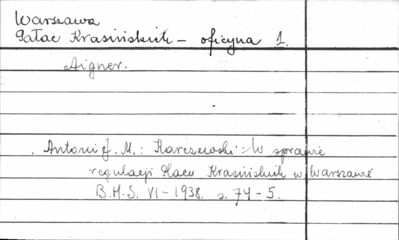 Warszawa
Pałac Krasińskich – oficyna 1.
Aigner.
Antoni J. M.: Karczewski: W sprawie
regulacji Placu Krasińskich w Warszawie
B.H.S. VI – 1938. s. 74 – 5.